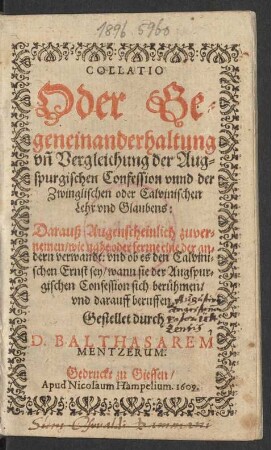 1896 5960
COLLATIO
Oder Ge-
geneinanderhaltung
vñ Vergleichung der Aug-
spurgischen Confession vnnd der
Zwinglischen oder Calvinischen
Lehr vnd Glaubens:
Darauß Augenscheinlich zuver-
nemen / wie nahe oder ferrne eine der an-
dern verwandt: vnd ob es den Calvini-
schen Ernst sey / wann sie der Augspur-
gischen Confession sich berühmen /
vnd darauff beruffen.
Gestellet durch
D. BALTHASAREM
MENTZERUM.
Gedruckt zu Giessen /
Apud Nicolaum Hampelium. 1609.